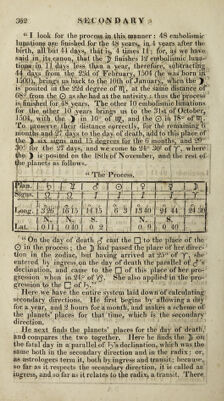 362 SECONDARY
“ I look for the process in this manner: 48 embolismic
lunations are finished for the 48 years, in 4 years after the
birth, all but 44 days, that is, 4 times 11; for, as we have
said in its canon, that the ☽ finishes 12 embolismic luna-
tions in 11 days less than a year, therefore, subtracting
44 days from the 23d of February, 1504 (he was born in
1500), brings us back to the 10th of January, when the ☽
is posited in the 22d degree of ♏, at the same distance of
68° from the ☉ as she had at the nativity: thus the process
is finished for 48 years. The other 10 embolismic lunations
for the other 10 years brings us to the 31st of October,
1504, with the ☽ in 10° of ♏, and the ☉ in 18° of ♏.
To preserve their distance correctly, for the remaining 6
months and 27 days to the day of death, add to this place of
the ☽ six signs and 15 degrees for the 6 months, and 29°
30′ for the 27 days, and we come to 24° 30′ of ♈, where
the ☽ is posited on the 18th of November, and the rest of
the planets as follows.
“ The Process.
Plan.
Signs.
Long.
Lat.
“ On the day of death ♂ cast the □ to the place of the
☉ in the process; the ☽ had passed the place of her direc-
tion in the zodiac, but having arrived at 25° of ♈, she
entered by ingress on the day of death the parallel of ♂'s
declination, and came to the □ of this place of her pro-
gression when in 24° of ♈. She also applied in the pro-
gression to the □ of ♄.”
Here we have the entire system laid down of calculating
secondary directions. He first begins by allowing a day
for a year, and 2 hours for a month, and makes a scheme of
the planets' places for that time, which is the secondary
direction.
He next finds the planets' places for the day of death,
and compares the two together. Here he finds the ☽ on
the fatal day in a parallel of ♄'s declination, which was the
same both in the secondary direction and in the radix; or,
as astrologers term it, both by ingress and transit; because,
so far as it respects the secondary direction, it is called an
ingress, and so far as it relates to the radix, a transit. There